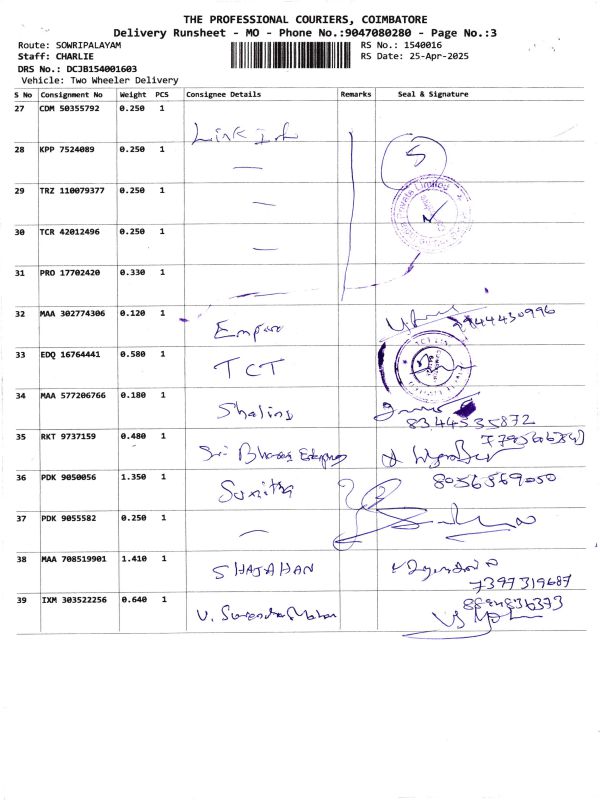 THE PROFESSIONAL COURIERS, COIMBATORE
Delivery Runsheet - MO - Phone No.:9047080280 - Page No.:3
Route: SOWRIPALAYAM
RS No.: 1540016
Staff: CHARLIE
RS Date: 25-Apr-2025
DRS No.: DCJB154001603
Vehicle: Two Wheeler Delivery
S No Consignment No Weight PCS Consignee Details Remarks Seal & Signature
27 CDM 50355792 0.250 1
Link
28 KPP 7524089 0.250 1 — 5
29 TRZ 110079377 0.250 1 —
Private Limited
30 TCR 42012496 0.250 1 —
31 PRO 17702420 0.330 1 —
32 MAA 302774306 0.120 1 Empire
33 EDQ 16764441 0.580 1 TCT
34 MAA 577206766 0.180 1 Shalini
8344535872
35 RKT 9737159 0.480 1 Sri
36 PDK 9050056 1.350 1 Sunitha 8056569050
37 PDK 9055582 0.250 1 —
38 MAA 708519901 1.410 1 SHAJAHAN
7397319687
39 IXM 303522256 0.640 1 V. Surendra Mohan